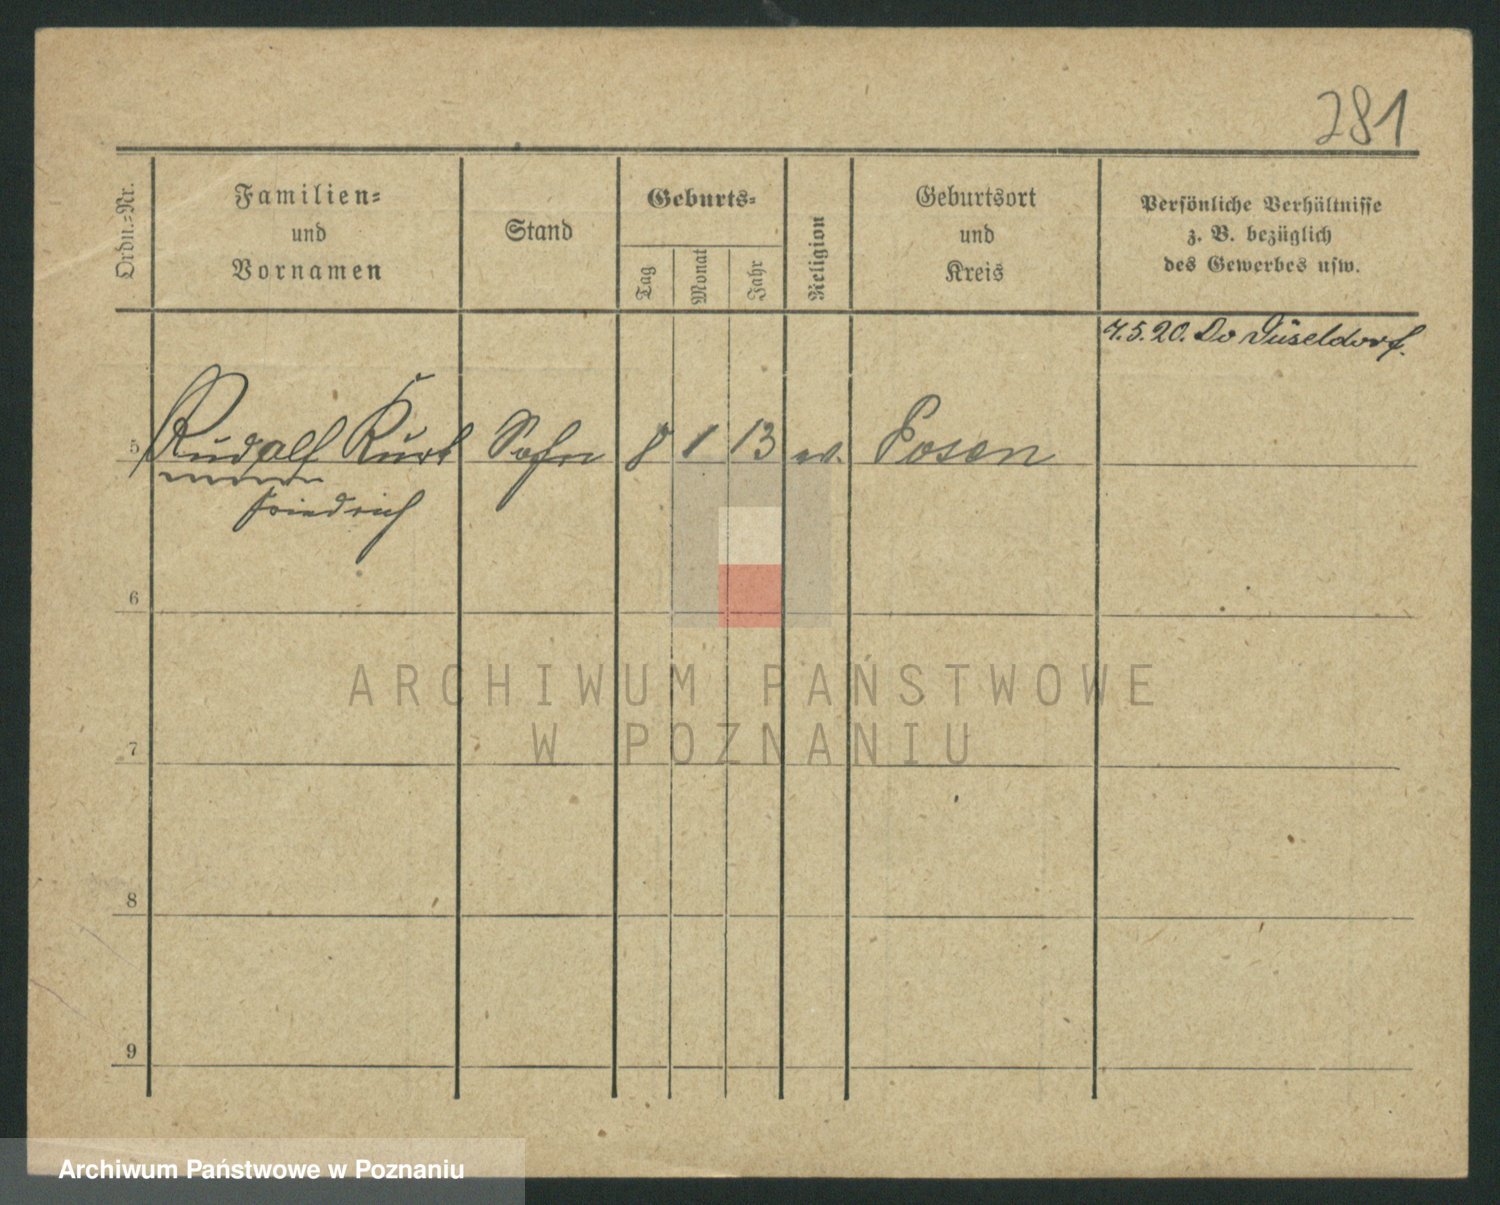 281
Ordn.-Nr.
Familien-
und
Vornamen
Stand
Geburts-
Tag
Monat
Jahr
Religion
Geburtsort
und
Kreis
Persönliche Verhältnisse
z. B. bezüglich
des Gewerbes usw.
4.5.20. Do Düseldorf.
5 Rudolf Kurt Sohn 8 1 13 ev. Posen
Friedrich
6
7
8
9
ARCHIWUM PAŃSTWOWE
W POZNANIU
Archiwum Państwowe w Poznaniu